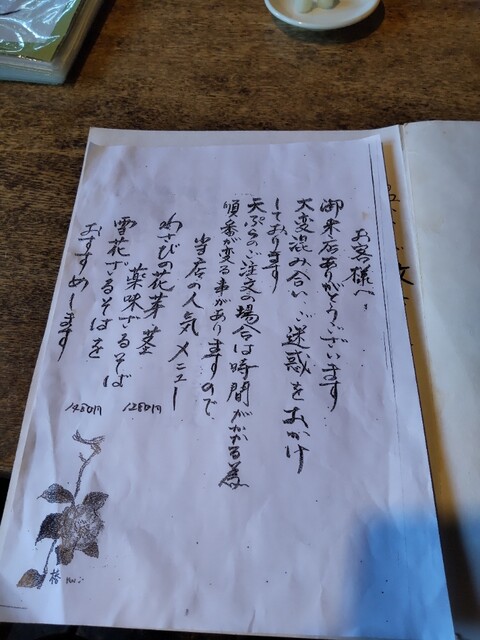 お客様へ
御来店ありがとうございます
大変混み合い、ご迷惑をおかけ
しております
天ぷらのご注文の場合は時間がかかる為
順番が変る事がありますので
当店の人気メニュー
わさびの花芽 茎
薬味ざるそば 1280円
雪花ざるそばを 1480円
おすすめします
椿